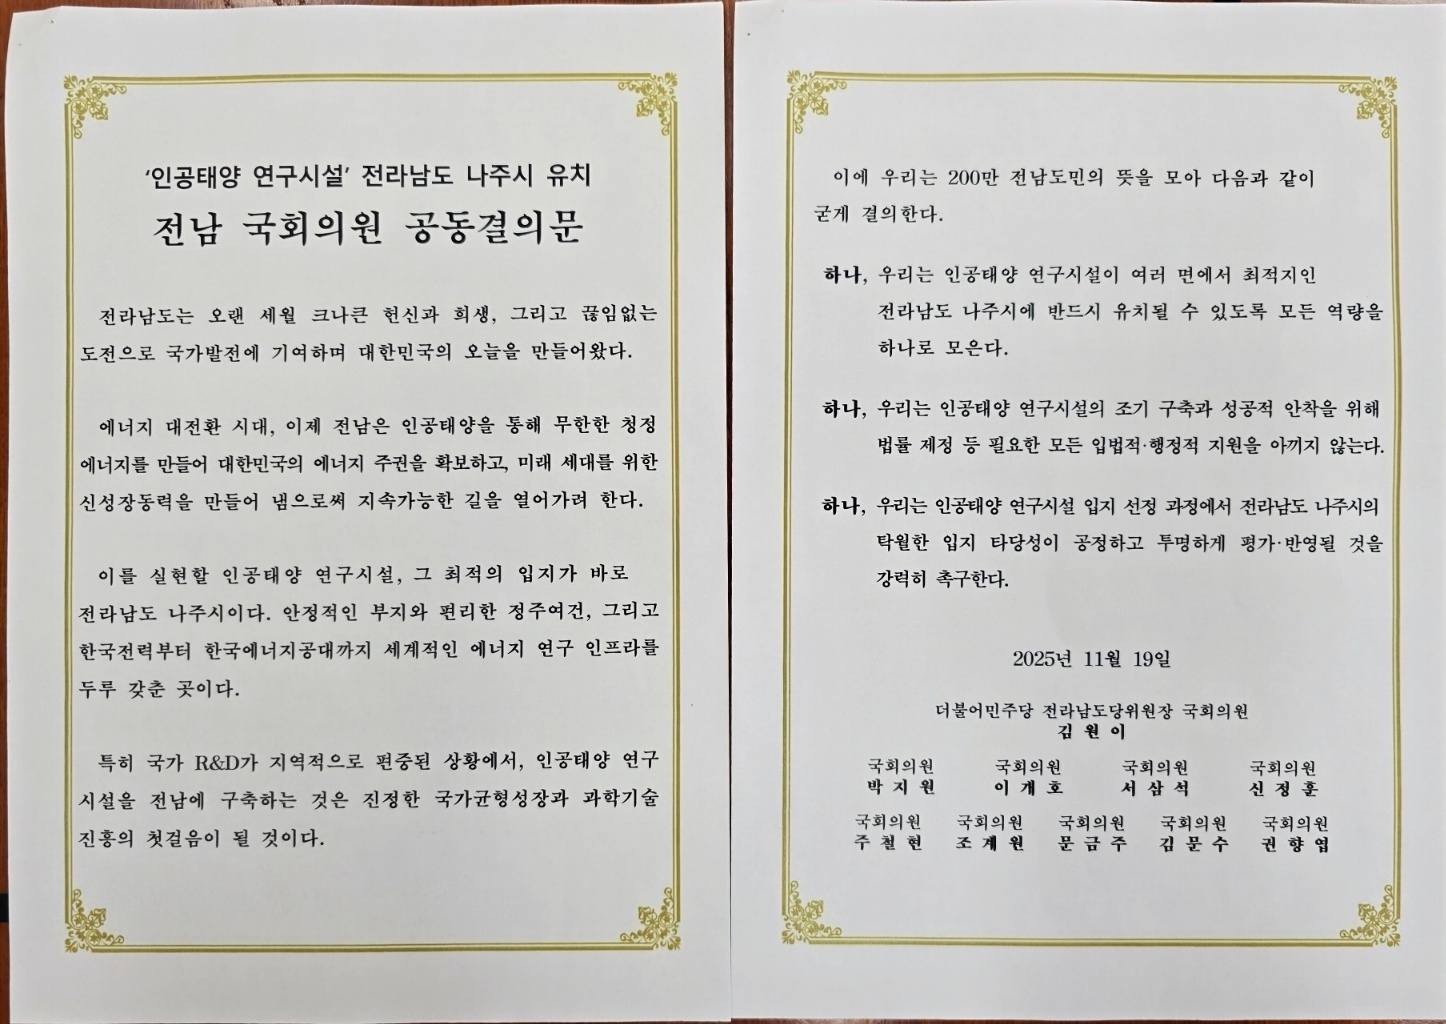 ‘인공태양 연구시설’ 전라남도 나주시 유치
전남 국회의원 공동결의문
전라남도는 오랜 세월 크나큰 헌신과 희생, 그리고 끊임없는
도전으로 국가발전에 기여하며 대한민국의 오늘을 만들어왔다.
에너지 대전환 시대, 이제 전남은 인공태양을 통해 무한한 청정
에너지를 만들어 대한민국의 에너지 주권을 확보하고, 미래 세대를 위한
신성장동력을 만들어 냄으로써 지속가능한 길을 열어가려 한다.
이를 실현할 인공태양 연구시설, 그 최적의 입지가 바로
전라남도 나주시이다. 안정적인 부지와 편리한 정주여건, 그리고
한국전력부터 한국에너지공대까지 세계적인 에너지 연구 인프라를
두루 갖춘 곳이다.
특히 국가 R&D가 지역적으로 편중된 상황에서, 인공태양 연구
시설을 전남에 구축하는 것은 진정한 국가균형성장과 과학기술
진흥의 첫걸음이 될 것이다.
이에 우리는 200만 전남도민의 뜻을 모아 다음과 같이
굳게 결의한다.
하나, 우리는 인공태양 연구시설이 여러 면에서 최적지인
전라남도 나주시에 반드시 유치될 수 있도록 모든 역량을
하나로 모은다.
하나, 우리는 인공태양 연구시설의 조기 구축과 성공적 안착을 위해
법률 제정 등 필요한 모든 입법적·행정적 지원을 아끼지 않는다.
하나, 우리는 인공태양 연구시설 입지 선정 과정에서 전라남도 나주시의
탁월한 입지 타당성이 공정하고 투명하게 평가·반영될 것을
강력히 촉구한다.
2025년 11월 19일
더불어민주당 전라남도당위원장 국회의원
김 원 이
국회의원 국회의원 국회의원 국회의원
박 지 원 이 개 호 서 삼 석 신 정 훈
국회의원 국회의원 국회의원 국회의원 국회의원
주 철 현 조 계 원 문 금 주 김 문 수 권 향 엽